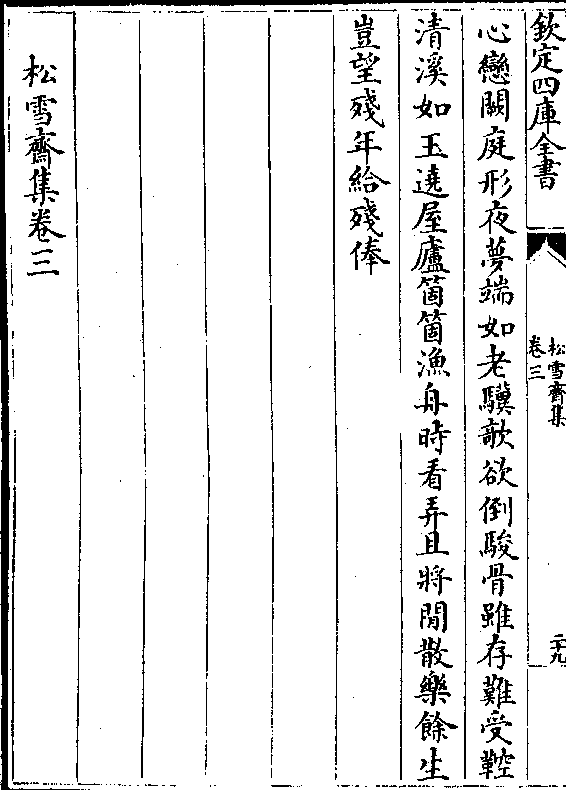 欽定四庫全書
松雪齋集
卷三
二十九
心戀闕庭形夜夢端如老驥欹欲倒駿骨雖存難受鞚
清溪如玉遶屋廬箇箇漁舟時看弄且將閒散樂餘生
豈望殘年給殘俸
松雪齋集卷三